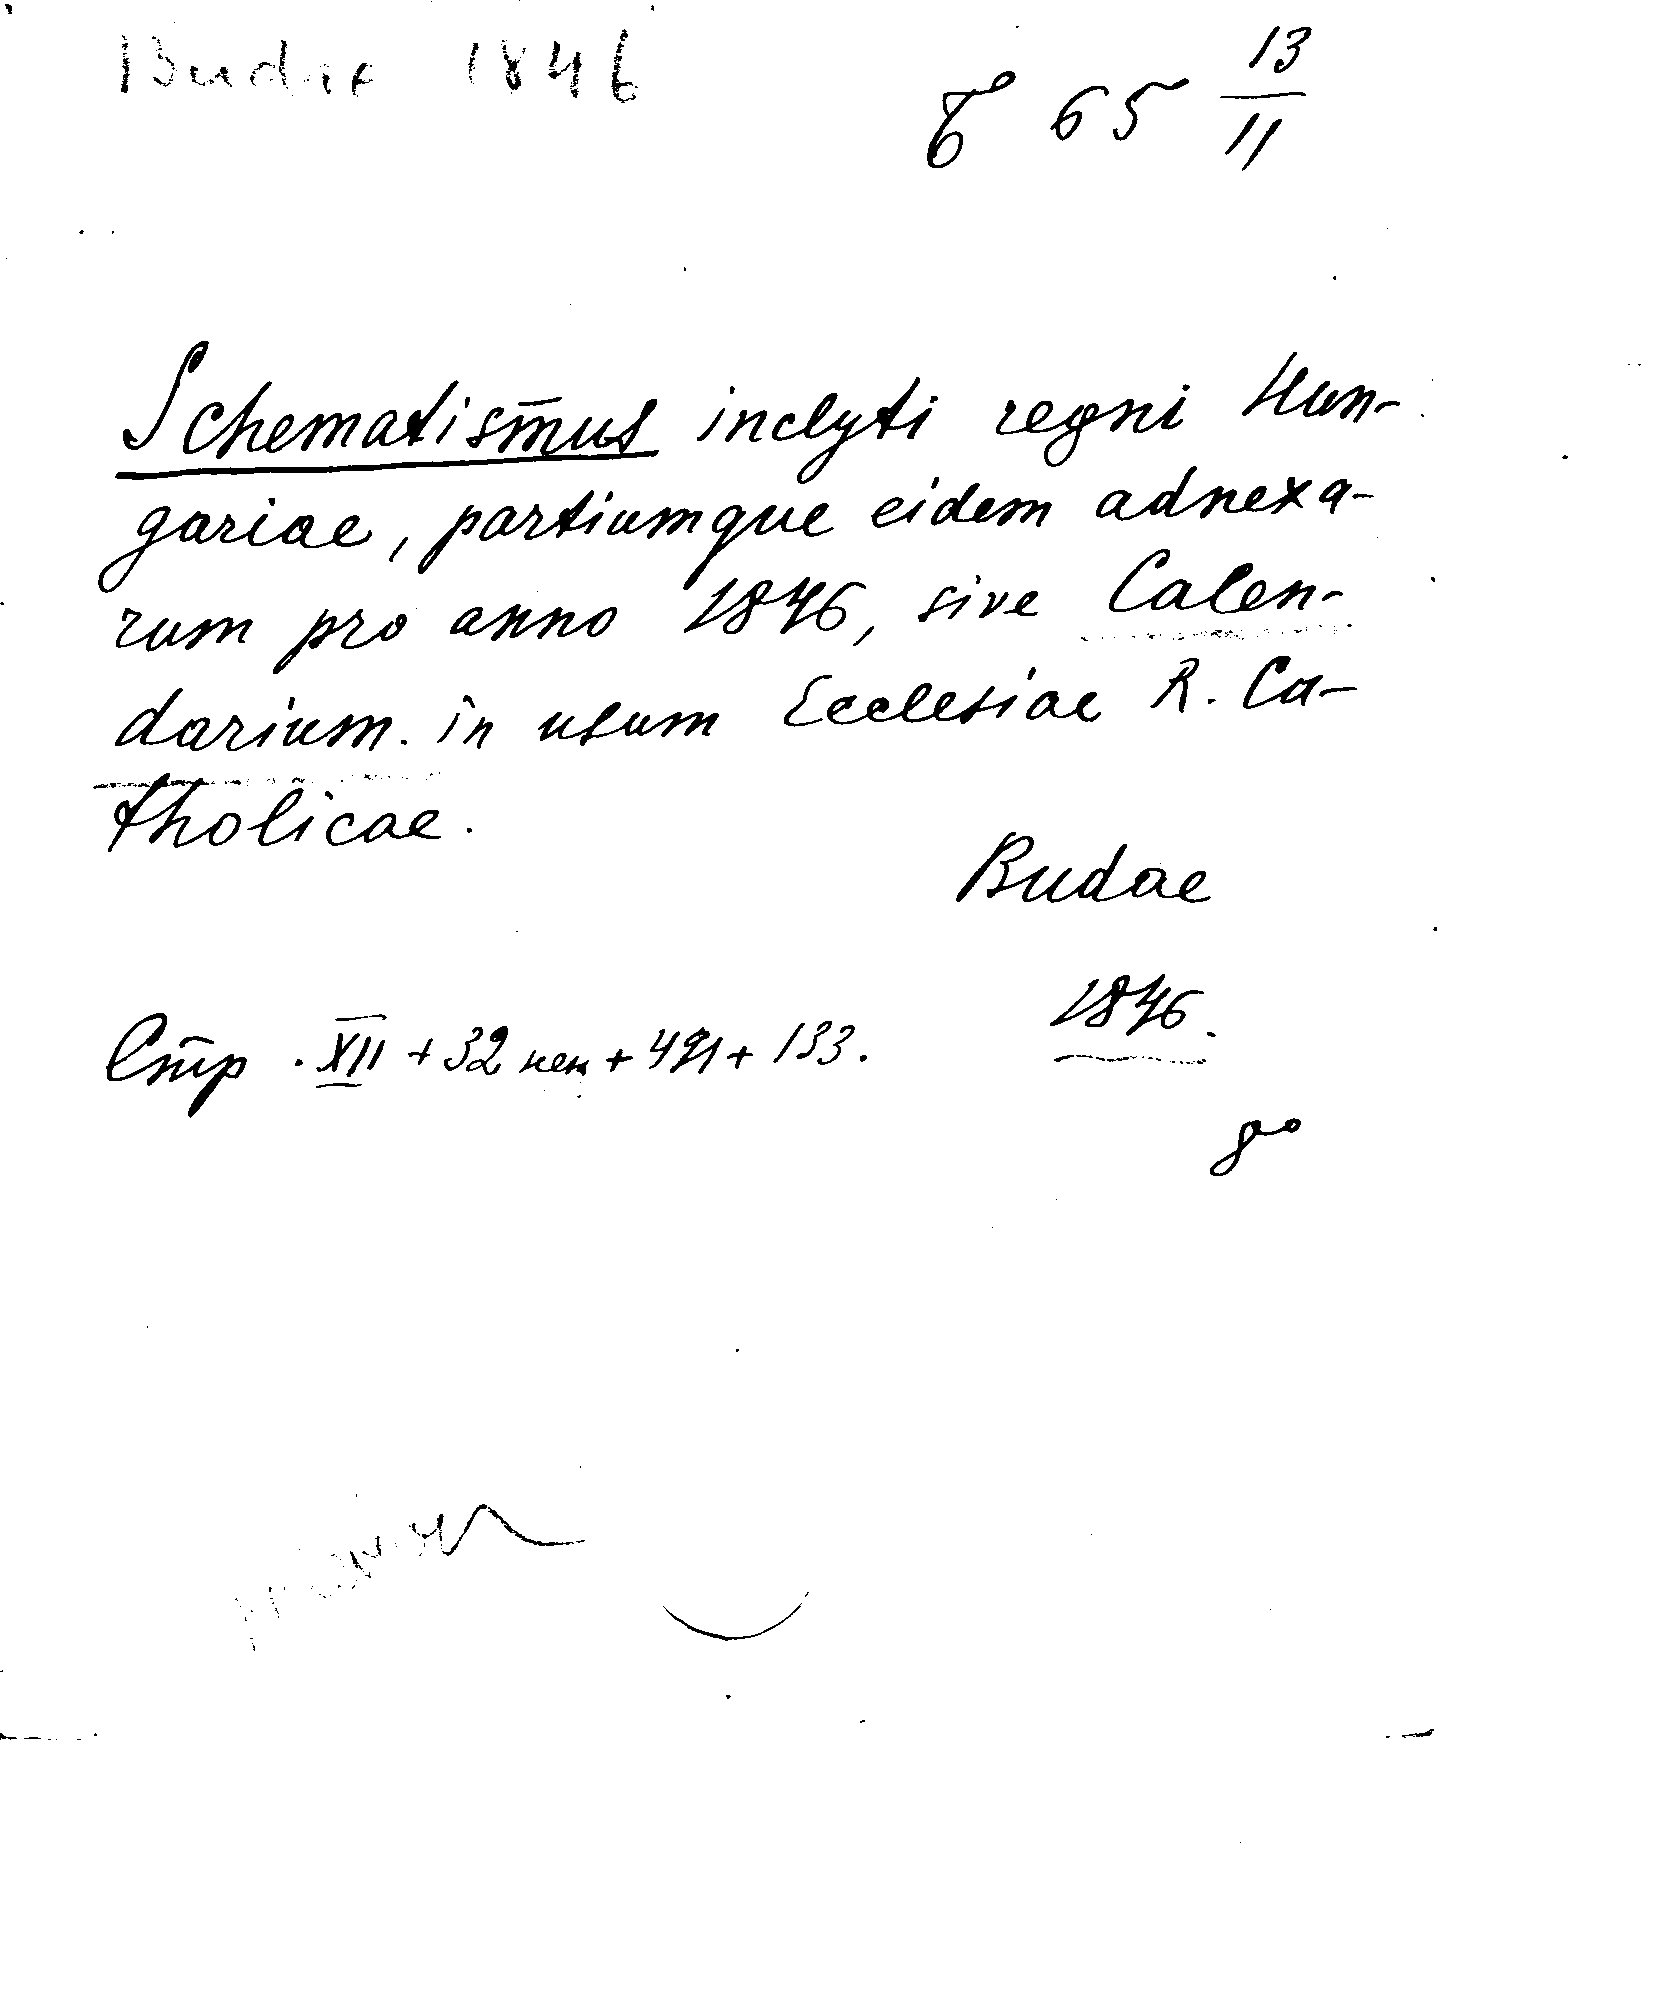 Budae 1846
Б 65 13/11
Schematismus inclyti regni Hun-
gariae, partiumque eidem adnexa-
rum pro anno 1846, sive Calen-
darium in usum Ecclesiae R. Ca-
tholicae.
Budae
1846.
Стр. XII + 32 нен + 491 + 133.